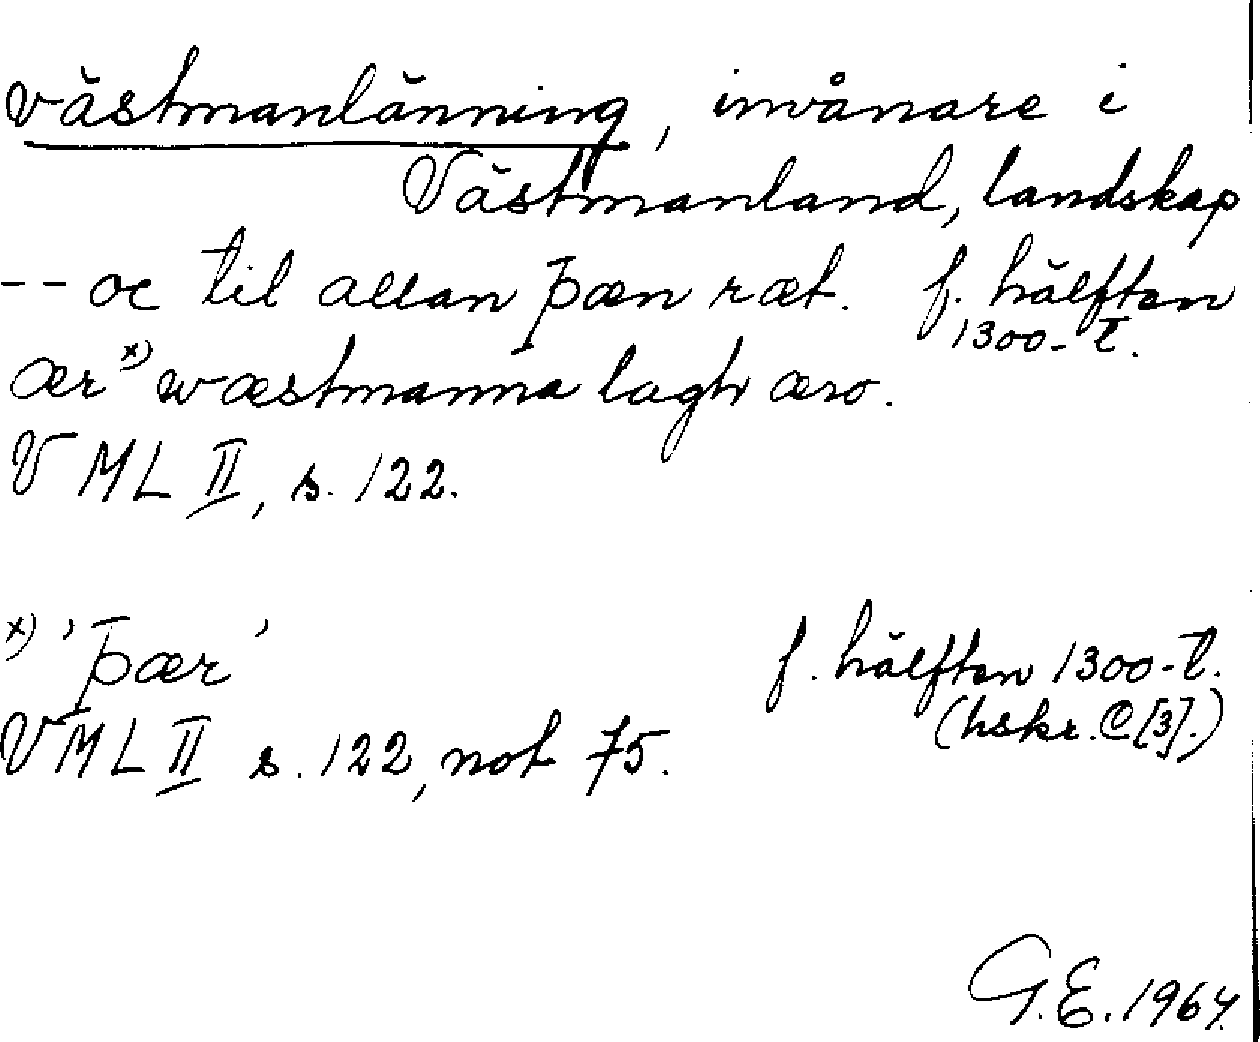 västmanlänning, invånare i
Västmanland, landskap
-- oc til allan þæn ræt. f. hälften
1300-t.
ær x) wæstmanna lagh æro.
VML II, s. 122.
x) 'þær' f. hälften 1300-t.
(hskr. C [3].)
VML II s. 122, not 75.
G.E. 1964.